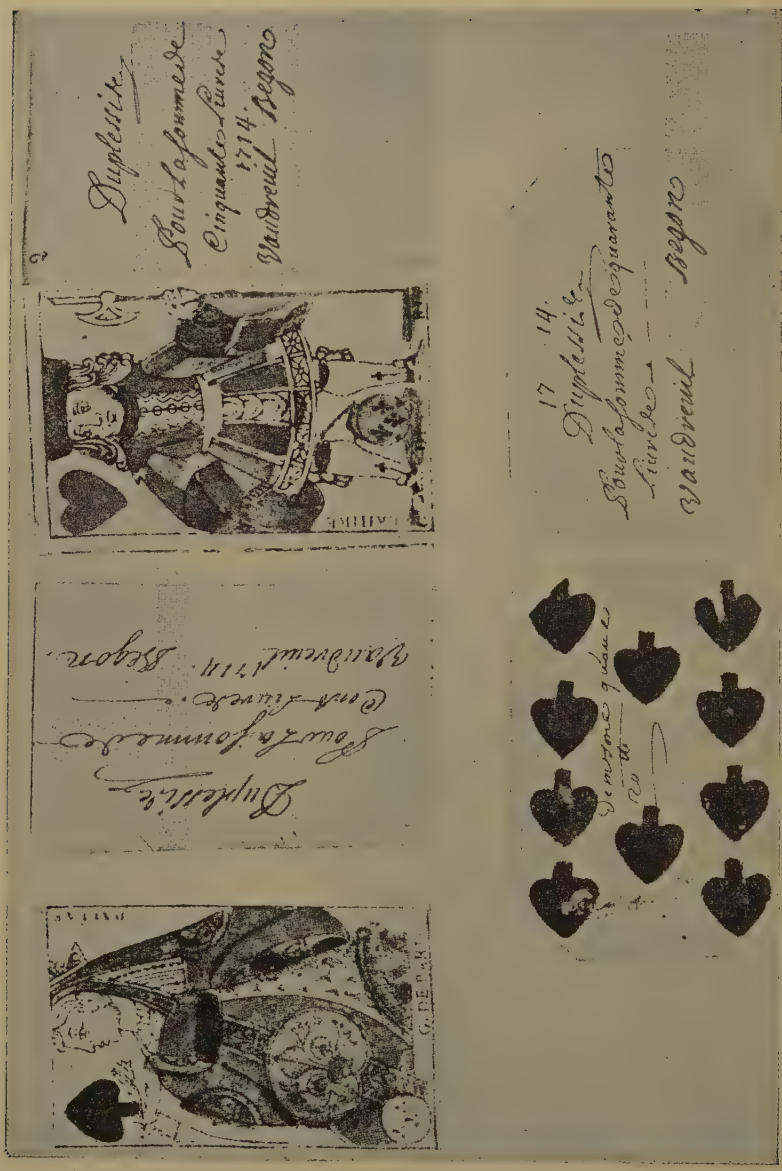 2
Duplessis
Pour la somme de
Cinquante Livres
1714
Vaudreuil Begon
LAHIRE
Duplessis
Pour La somme de
Cent Livres
Vaudreuil 1714. Begon.
PALLAS
G. DE
17 14.
Duplessis
Pour la somme de quarante
Livres
Vaudreuil Begon